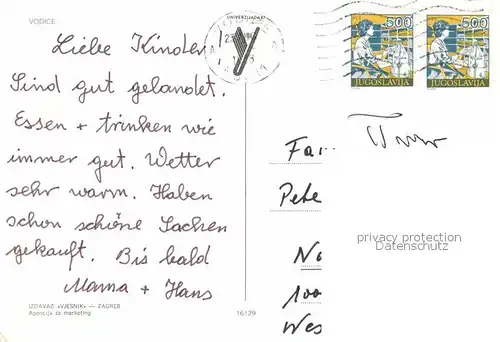 VODICE
Liebe Kinder
Sind gut gelandet.
Essen + trinken wie
immer gut. Wetter
sehr warm. Haben
schon schöne Sachen
gekauft. Bis bald
Mama + Hans
IZDAVAČ »VJESNIK« — ZAGREB
Agencija za marketing
16129
UNIVERZIJADA
500
JUGOSLAVIJA
500
JUGOSLAVIJA
Fa
Pete
No
100
Wes
privacy protection
Datenschutz